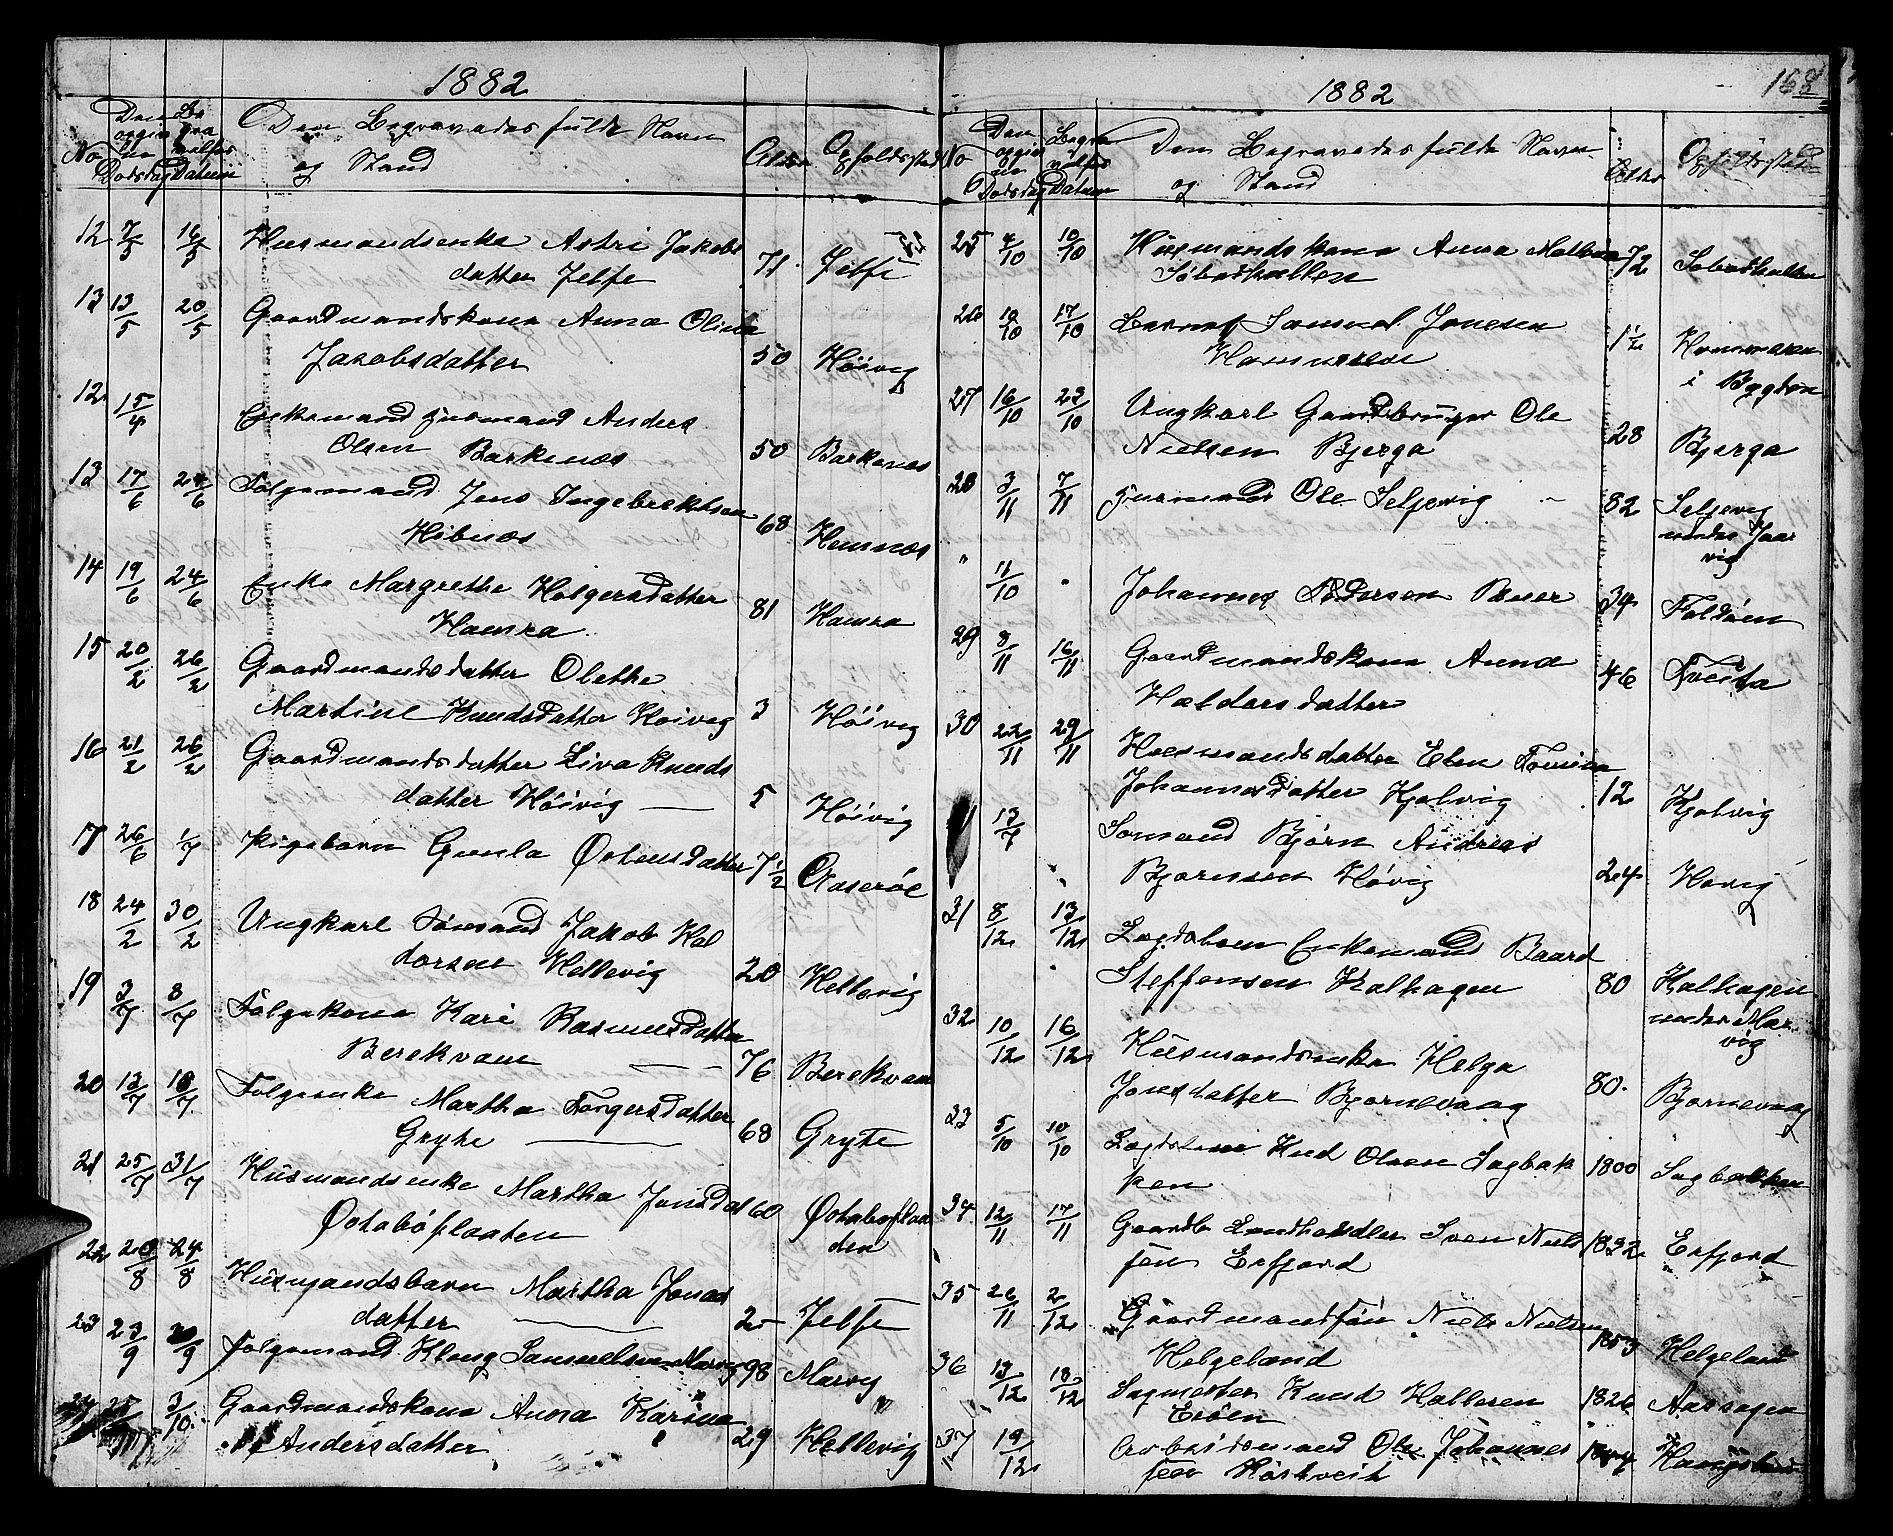 1882
No Den opgivne Dødsdag Begravelses Datum Den Begravedes fulde Navn
og Stand Alder Opholdssted
12 7/5 16/5 Huusmandsenke Astri Jakobs
datter Jelse 71 Jelse
13 13/5 20/5 Gaardmandskone Anna Oline
Jakobsdatter 50 Höivig
12 15/4 Enkemand Anders
Olsen Barkenæs 50 Barkenæs
13 17/6 24/6 Folgemand Jens Ingebrektsen
68
14 19/6 24/6 Enke Margrethe Holgersdatter
Hamra 81 Hamra
15 20/2 26/2 Gaardmandsdatter Olethe
Martine Knudsdatter Hoivig 3 Höivig
16 21/2 26/2 Gaardmandsdatter Liva Knuds
datter Höivig — 5 Höivig
17 26/6 1/7 Pigebarn Gunla 7 1/2
18 24/2 30/2 Ungkarl Sömand Jakob Hal
dorsen Hellevig 20 Hellevig
19 3/7 8/7 Folgekone Kari Rasmusdatter
Berekvam — 76 Berekvam
20 13/7 18/7 Folgeenke Martha Torgersdatter
Gryte — 68 Gryte
21 25/7 31/7 Husmandsenke Martha Jonsdat 60
Östaböflaaten Östaboflaa
den
22 20/8 24/8 Husmandsbarn Martha Jonas
datter — 2 Jelse
23 23/9 30/9 Folgemand Kloug Samuelsen Marvig 98 Marvig
3/10 Gaardmandskone Anna Karine
Andersdatter 29 Hellevig
168
1882
No Den opgivne Dødsdag Begravelses Datum Den Begravedes fulde Navn
og Stand Alder Opholdssted
25 4/10 10/10 Husmandskone Anna Malene
72
26 10/10 17/10 Barnet Samuel Jonesen
Hammeren 1 1/2 Hammeren
i Bygden
27 16/10 23/10 Ungkarl Gaardbruger Ole
Nielsen Bjerga 28 Bjerga
28 3/11 7/11 Ole Seljevig 82 Seljevig
under Jaar
vig
" 11/10 " Johannes Pedersen 34 Foldöen
29 8/11 16/11 Gaardmandskone Anna
Haldorsdatter 46 Tveita
30 22/11 29/11 Huusmandsdatter Elen
Johannesdatter Kjolvig 12 Kjolvig
13/7 Somand Björn Andreas
Bjornsen Hövig 24 Hovig
31 8/12 13/12 Lægdslem Enkemand Baard
Steffensen Kalhagen 80 Kalhagen
under Mar
vig
32 10/12 16/12 Husmandsenke Helga
Jonsdatter Bjornevaag 80 Bjornevaag
33 5/10 10/10 Lægdslem Knud Olsen Sagbak
ken 1800 Sagbakken
34 12/11 17/11 Gaardb Landhandler Sven Niel
sen Erfjord 1832 Erfjord
35 26/11 2/12 Gaardmandsön Niels Nielsen
Helgeland 1853 Helgeland
36 13/12 18/12 Sagmester Knud Halleren
Eröen 1826
37 19/12 Arbeidsmand Ole Johannes
sen Hastveit